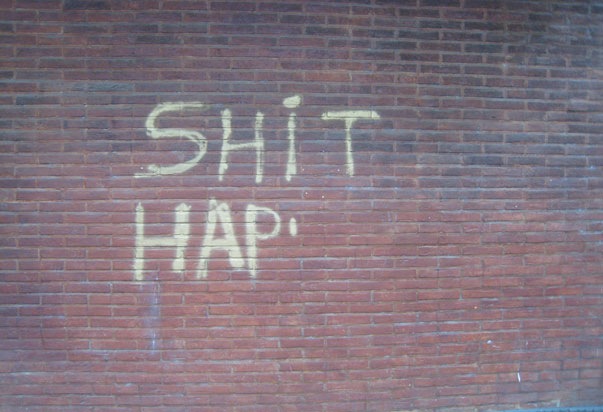 SHiT
HAP